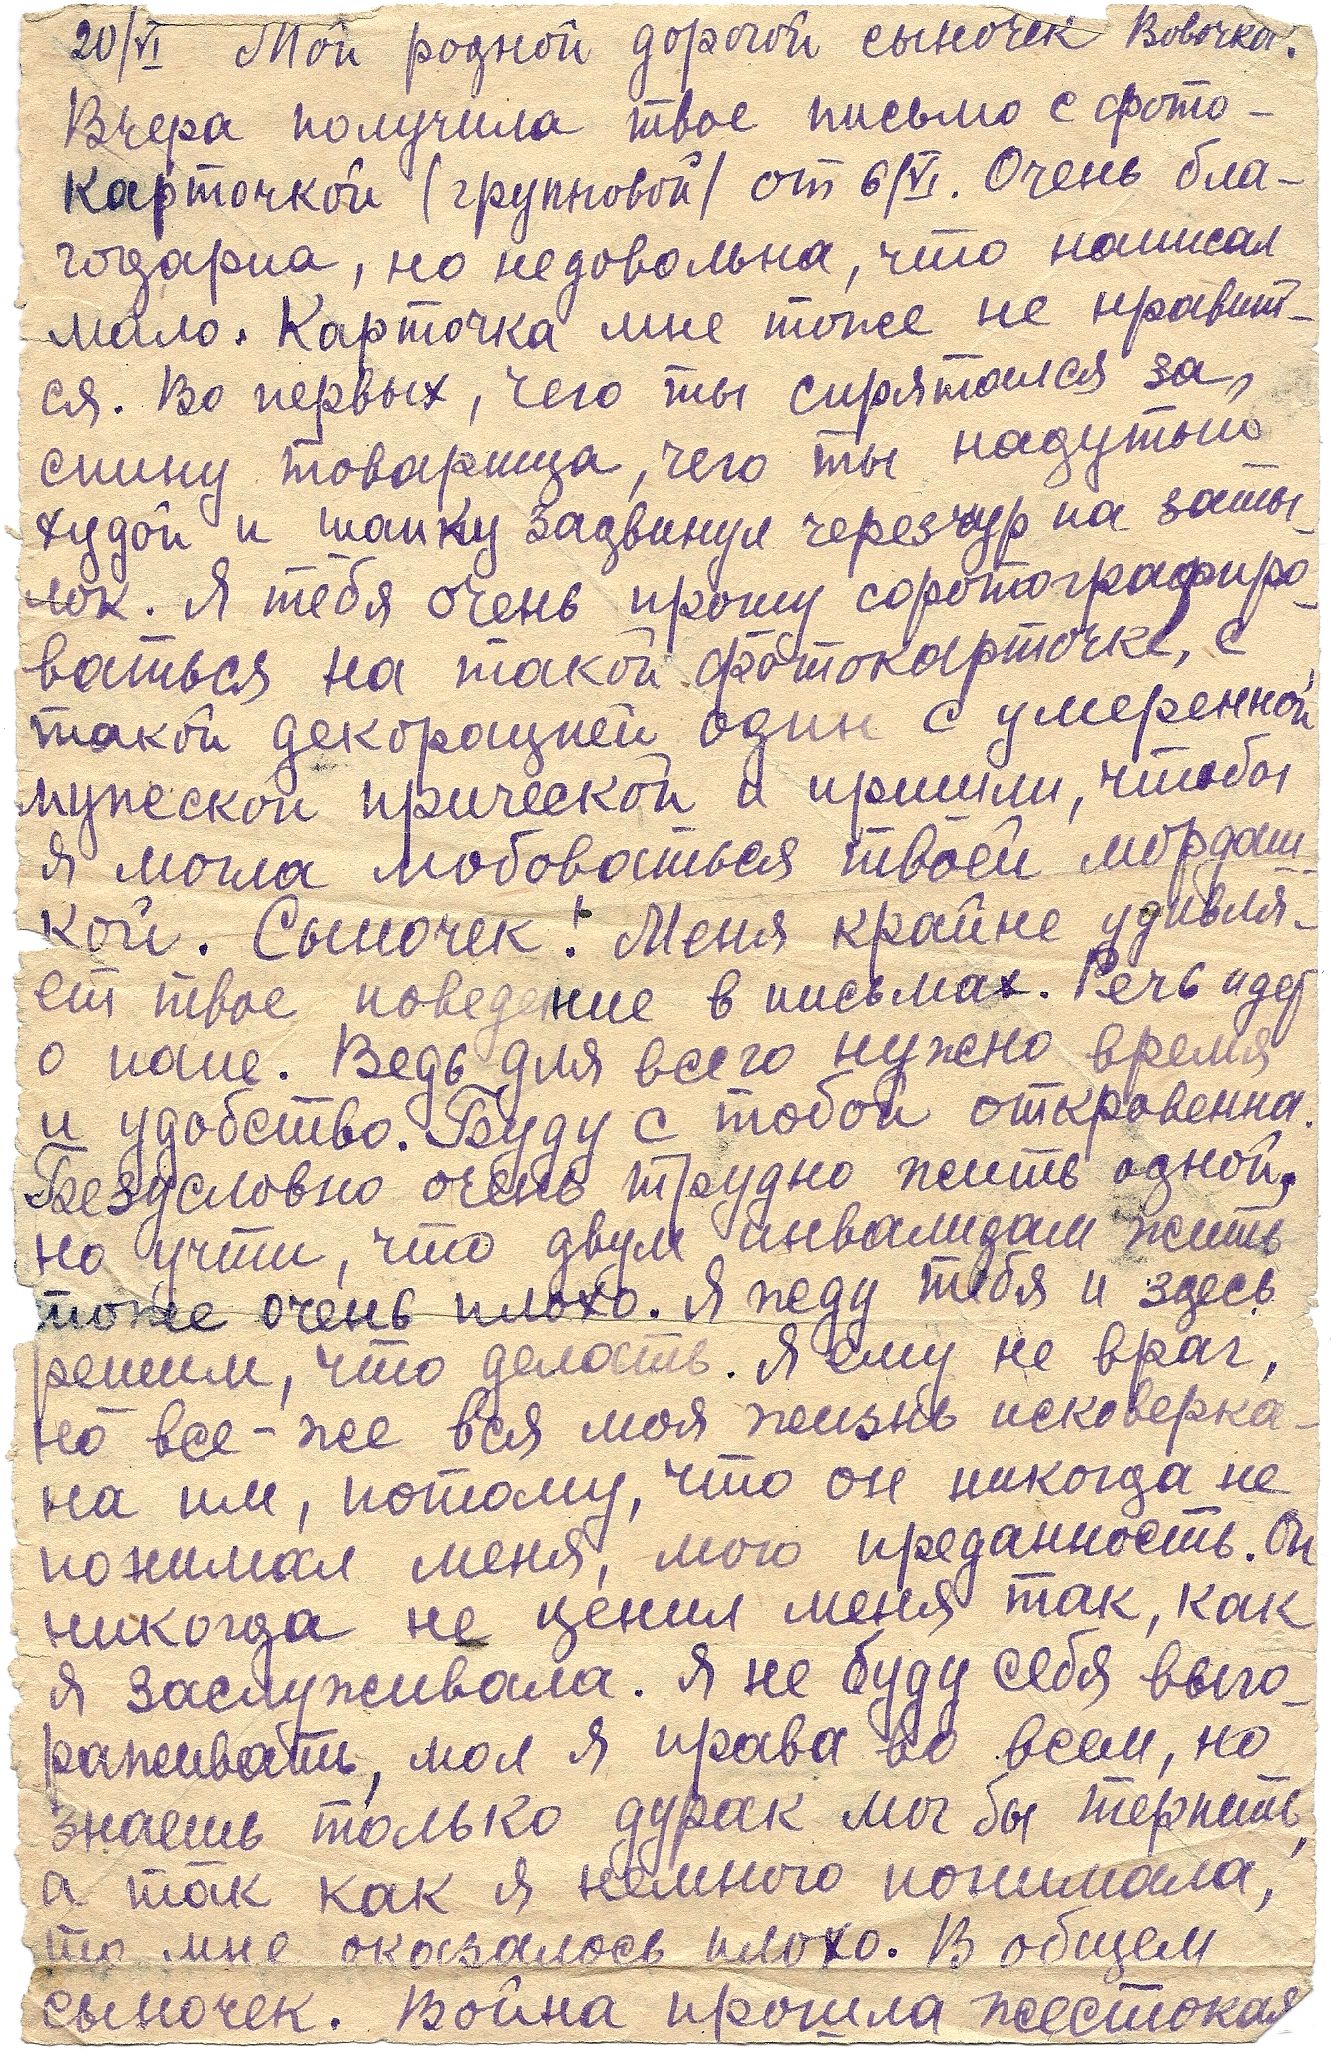 20/VI Мой родной дорогой сыночек Вовочка.
Вчера получила твое письмо с фото-
карточкой (групповой) от 6/VI. Очень бла-
годарна, но недовольна, что написал
мало. Карточка мне тоже не нравит-
ся. Во первых, чего ты спрятался за
спину товарища, чего ты надутый
худой и шапку задвинул черезчур на заты-
лок. Я тебя очень прошу сфотографиро-
ваться на такой фотокарточке, с
такой декорацией один с умеренной
мужеской прической и пришли, чтобы
я могла любоваться твоей мордаш-
кой. Сыночек! Меня крайне удивля-
ет твое поведение в письмах. Речь идет
о папе. Ведь для всего нужно время
и удобство. Буду с тобой откровенна.
Безусловно очень трудно жить одной,
но учти, что двум инвалидам жить
тоже очень плохо. Я жду тебя и здесь
решим, что делать. Я ему не враг,
но все-же вся моя жизнь исковерка-
на им, потому, что он никогда не
понимал меня, мою преданность. Он
никогда не ценил меня так, как
я заслуживала. Я не буду себя выго-
раживать, мол я права во всем, но
знаешь только дурак мог бы терпеть,
а так как я немного понимала,
то мне оказалось плохо. В общем
сыночек. Война прошла жестокая